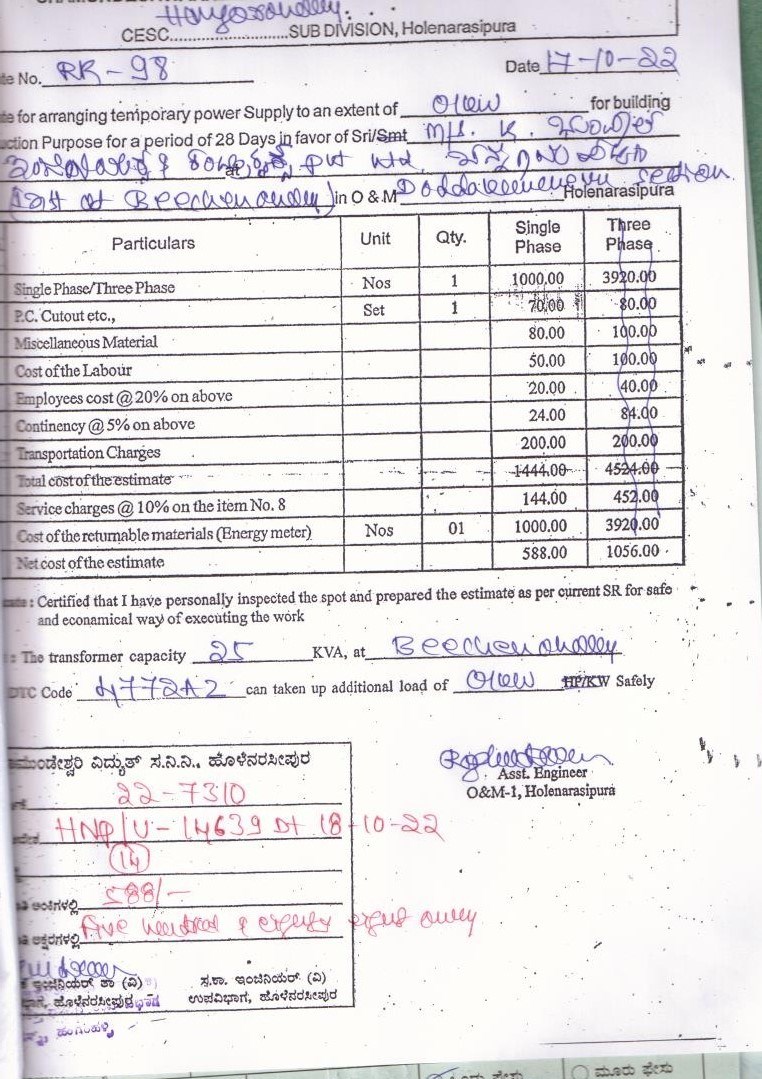 CESC..................SUB DIVISION, Holenarasipura
te No. RR-98 Date 17-10-22
te for arranging temporary power Supply to an extent of 01KW for building
ction Purpose for a period of 28 Days in favor of Sri/Smt M/s. K.
at Beechenahally) in O & M Section Holenarasipura
Particulars Unit Qty. Single Phase Three Phase
Single Phase/Three Phase Nos 1 1000.00 3920.00
P.C. Cutout etc., Set 1 70.00 80.00
Miscellaneous Material 80.00 100.00
Cost of the Labour 50.00 100.00
Employees cost @ 20% on above 20.00 40.00
Continency @ 5% on above 24.00 84.00
Transportation Charges 200.00 200.00
Total cost of the estimate 1444.00 4524.00
Service charges @ 10% on the item No. 8 144.00 452.00
Cost of the returnable materials (Energy meter) Nos 01 1000.00 3920.00
Net cost of the estimate 588.00 1056.00
cate : Certified that I have personally inspected the spot and prepared the estimate as per current SR for safe
and econamical way of executing the work
: The transformer capacity 25 KVA, at Beechenahally
DTC Code 4772A2 can taken up additional load of 01KW HP/KW Safely
ಮುಂಡೇಶ್ವರಿ ವಿದ್ಯುತ್ ಸ.ನಿ.ನಿ., ಹೊಳೆನರಸೀಪುರ
Asst. Engineer
O&M-1, Holenarasipura
22-7310
HNP/U-14639 Dt 18-10-22
(14)
ಅಂಕಿಗಳಲ್ಲಿ 588/-
ಅಕ್ಷರಗಳಲ್ಲಿ Five hundred & eighty eight only
ಇಂಜಿನಿಯರ್ ಶಾ (ವಿ) ಸ.ಕಾ. ಇಂಜಿನಿಯರ್ (ವಿ)
ಹೊಳೆನರಸೀಪುರ ಉಪವಿಭಾಗ, ಹೊಳೆನರಸೀಪುರ
ಮೂರು ಫೇಸು